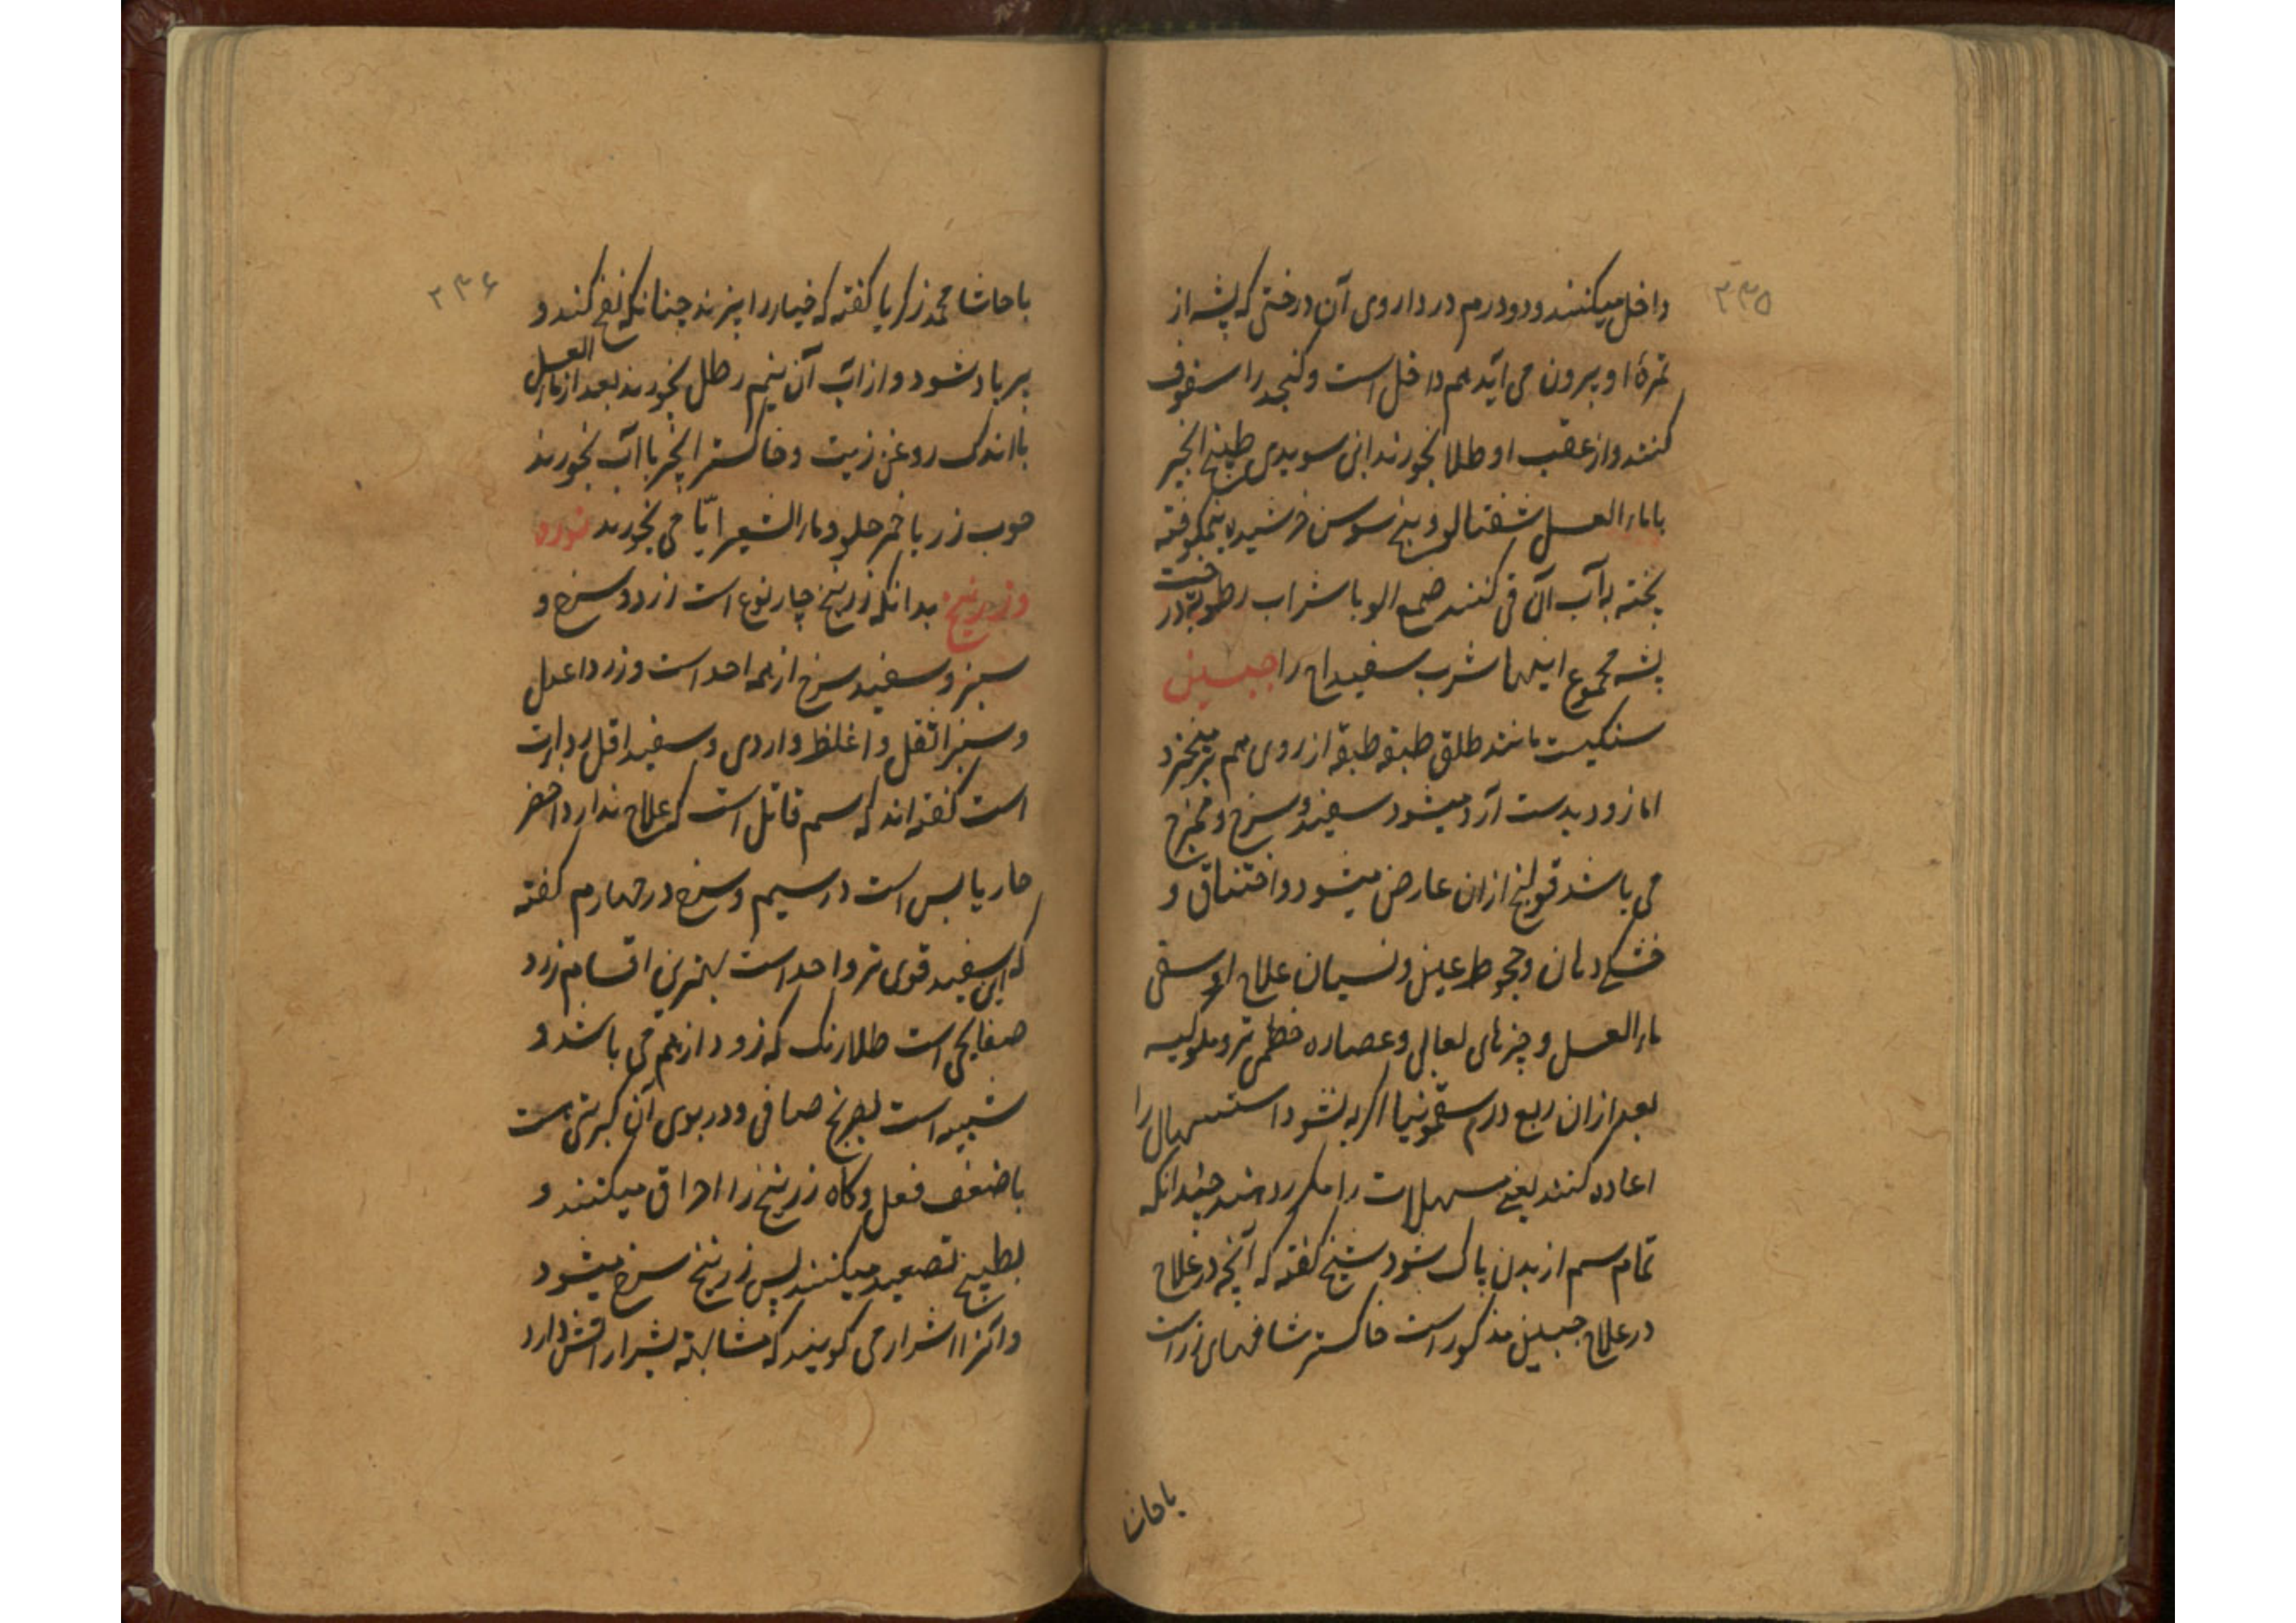 ۳۳۵
داخل میکنند ودودرم در داروی آن درختی که پشه از
ثمرهٔ او بیرون می آید هم داخل است وکنجد را سفوف
کنند واز عقب او طلا بخورند ابن سویدی طبیخ انجیر
باماء العسل شفتالو وبیخ سوسن خرشیده نیمکوفته
پخته به آب آن قی کنند صمغ الو با شراب رطوبة در
پشه مجموع اینها شرب سفیداج را جبسین
سنکیست مانند طلق طبقه طبقه از روی هم برمیخیزد
اما زود بدست آرد میشود سفید وسرخ وممتزج
می باشد قولنج ازان عارض میشود واختناق و
خشکی دهان وجحوظ عین ونسیان علاج او سقی
ماء العسل و چیزهای لعابی وعصاره خطمی تر وملوکیه
بعد ازان ربع درم سقمونیا اکر به نشود استسهال را
اعاده کنند یعنی مسهلات را مکرر دهند چندانکه
تمام سم از بدن پاک شود شیخ کفته که آنچه در علاج
در علاج جبسین مذکور است خاکستر شاخهای زر است
باحاشا
۳۳۶
باحاشا محمد زکریا کفته که خیار را بپزند چنانکه نفخ کند و
پر باد شود واز آب آن نیم رطل بخورند بعد از ماء العسل
با اندک روغن زیت وخاکستر انجیر با آب بخورند
حوب زر با خمر حلو وماء الشعیر ایّامی بخورند نوره
وزرنیخ بدانکه زرنیخ چار نوع است زرد وسرخ و
سبز وسفید سرخ از همه احد است وزرد اعدل
وسبز اثقل واغلظ واردی وسفید اقل
است کفته اند که سم قاتل است که علاج ندارد اخضر
حار یابس است در سیم وسرخ در چهارم کفته
که این سفید قوی تر واحد است بهترین اقسام زرد
صفایحی است طلارنک که زود از هم می باشد و
شبیه است بصرنج صافی ودر بوی آن کبریتی است
باضعف فعل وکاه زرنیخ را احراق میکنند و
بطبیخ تصعید میکنند پس زرنیخ سرخ میشود
وآنرا اشرار می کویند که مشابهة بشرار آتش دارد